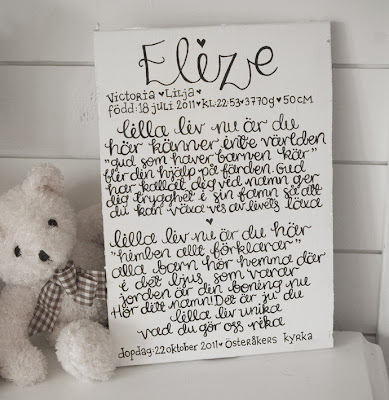 Elize
Victoria ♥ Lilja ♥
född: 18 juli 2011 ♥ kl: 22:53 ♥ 3770g ♥ 50cm
Lilla liv nu är du
här känner inte världen
"Gud som haver barnen kär"
blir din hjälp på färden. Gud
har kallat dig vid namn ger
dig trygghet i sin famn så att
du kan växa vis av livets läxa
♥
Lilla liv nu är du här
"himlen allt förklarar"
alla barn hör hemma där
i det ljus som varar
jorden är din boning nu
Hör ditt namn! Det är ju du
lilla liv unika
vad du gör oss rika
dopdag: 22 oktober 2011 ♥ Österåkers kyrka